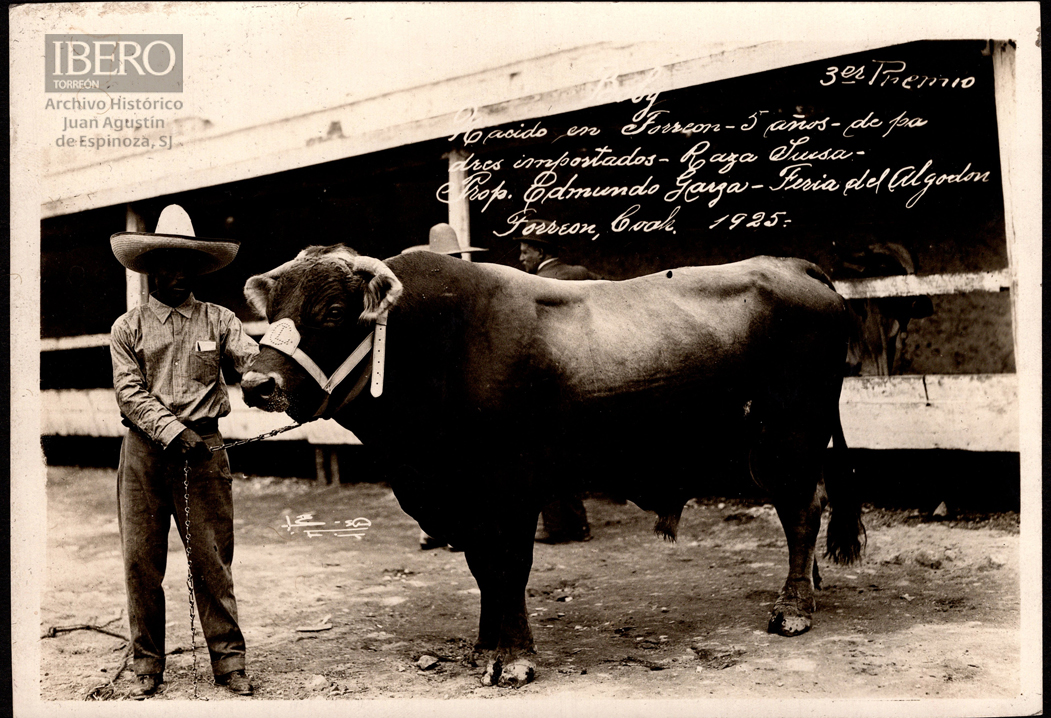 IBERO
TORREÓN
Archivo Histórico
Juan Agustín
de Espinoza, SJ
3er Premio
Nacido en Torreon - 5 años - de pa
dres importados - Raza Suisa -
Prop. Edmundo Garza - Feria del Algodon
Torreon, Coah. 1925 -